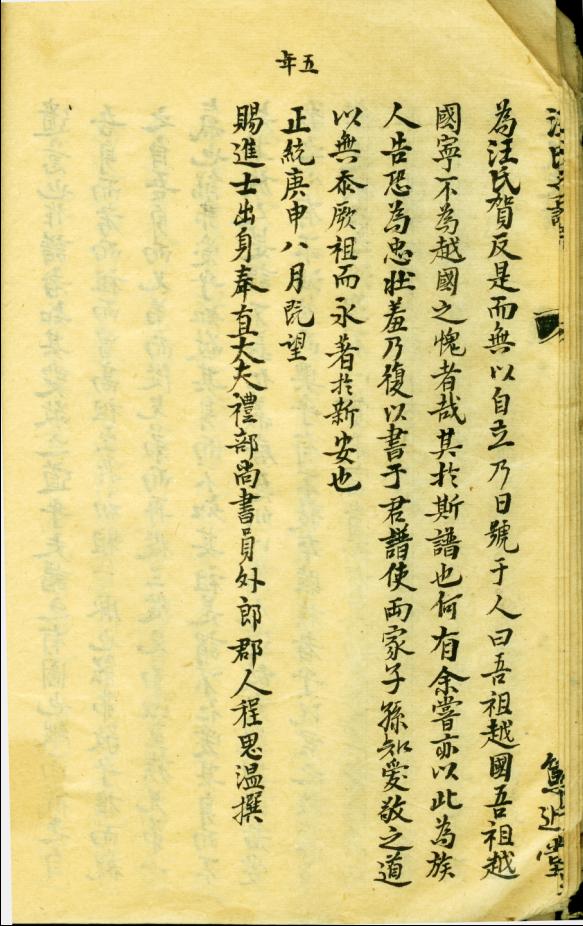 五年
為汪氏賀反是而無以自立乃日號于人曰吾祖越國吾祖越
國寧不為越國之愧者哉其扵斯譜也何有余嘗亦以此為族
人告恐為忠壯羞乃復以書于君譜使兩家子孫知愛敬之道
以無忝厥祖而永著扵新安也
正統庚申八月既望
賜進士出身奉直大夫禮部尚書員外郎郡人程思温撰